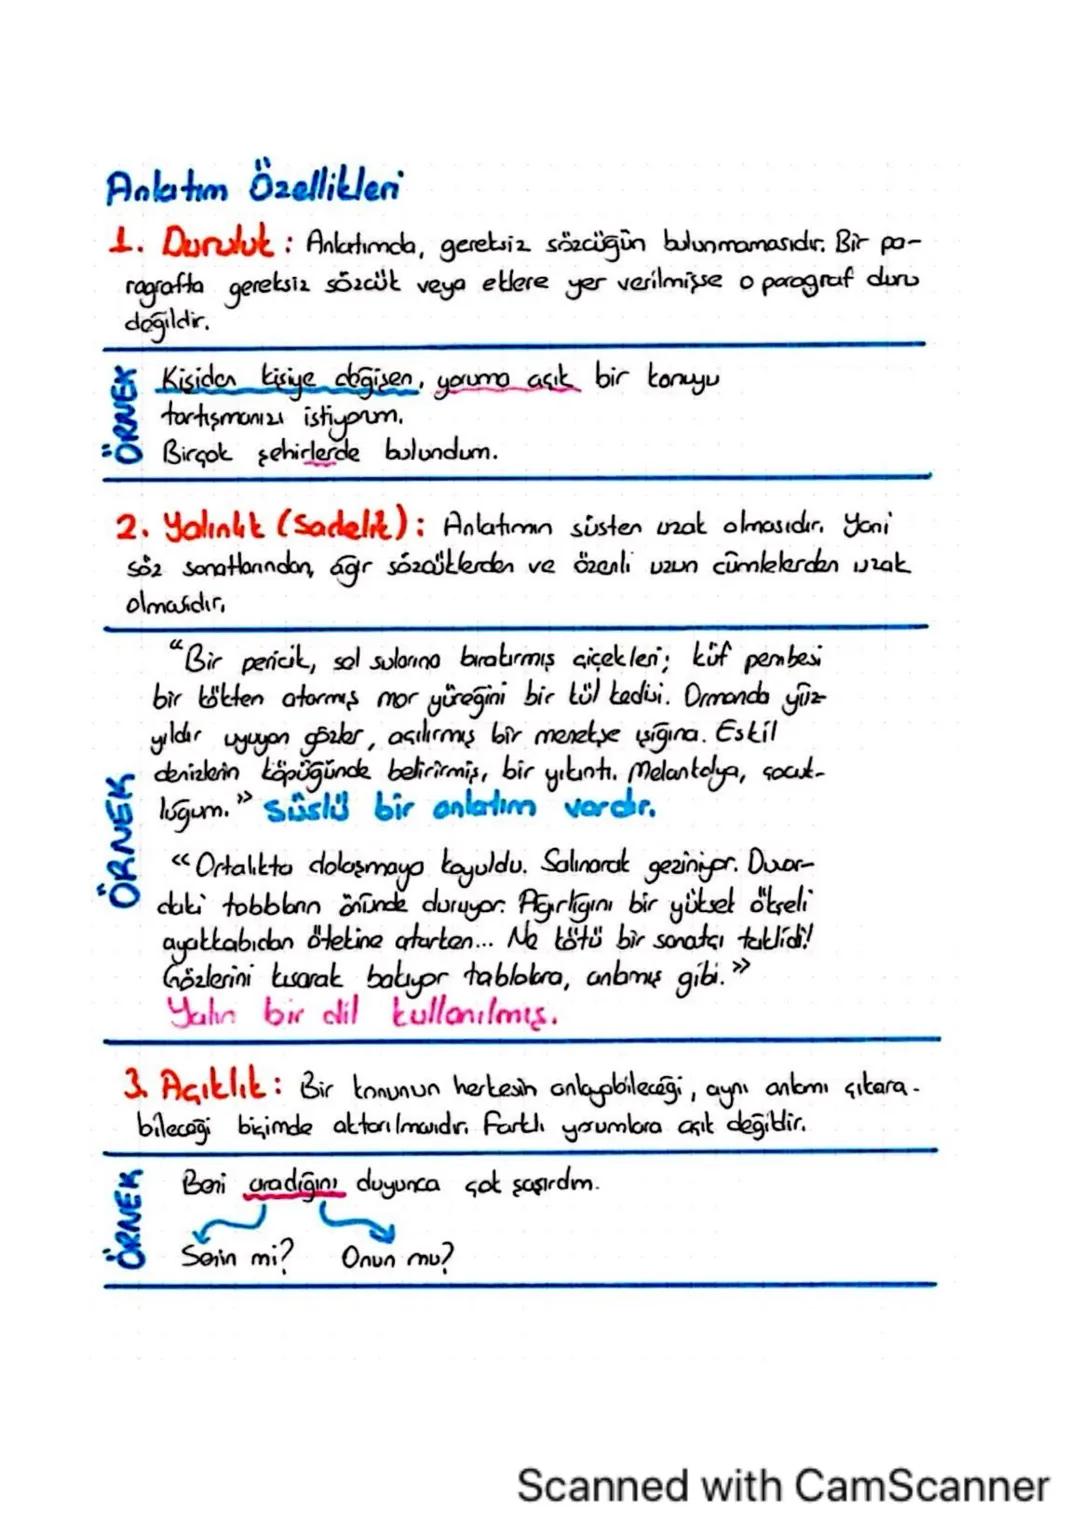 Anlatım Özellikleri
1. Duruluk : Anlatımda, gereksiz sözcüğün bulunmamasıdır. Bir pa-
ragrafta gereksiz sözcük veya eklere yer verilmişse o paragraf duru
değildir.
ÖRNEK
Kişiden kişiye değişen, yoruma açık bir konuyu
tartışmanızı istiyorum.
Birçok şehirlerde bulundum.
2. Yalınlık (Sadelik) : Anlatımın süsten uzak olmasıdır. Yani
söz sanatlarından, ağır sözcüklerden ve özenli uzun cümlelerden uzak
olmasıdır.
ÖRNEK
“Bir pericik, sal sularına bıratırmış çiçekleri; küf pembesi
bir kökten atarmış mor yüreğini bir tül kedisi. Ormanda yüz-
yıldır uyuyan gözler, açılırmış bir menekşe ışığına. Eskil
denizlerin köpüğünde belirirmiş, bir yıkıntı. Melankolya, çocuk-
luğum.” Süslü bir anlatım vardır.
“Ortalıkta dolaşmaya koyuldu. Salınarak geziniyor. Duvar-
daki tabloların önünde duruyor. Ağırlığını bir yüksek ökçeli
ayakkabıdan ötekine atarken... Ne kötü bir sanatçı taklidi!
Gözlerini kısarak bakıyor tablolara, anlamış gibi.”
Yalın bir dil kullanılmış.
3. Açıklık : Bir konunun herkesin anlayabileceği, aynı anlamı çıkara-
bileceği biçimde aktarılmasıdır. Farklı yorumlara açık değildir.
ÖRNEK
Beni aradığını duyunca çok şaşırdım.
Senin mi? Onun mu?
Scanned with CamScanner